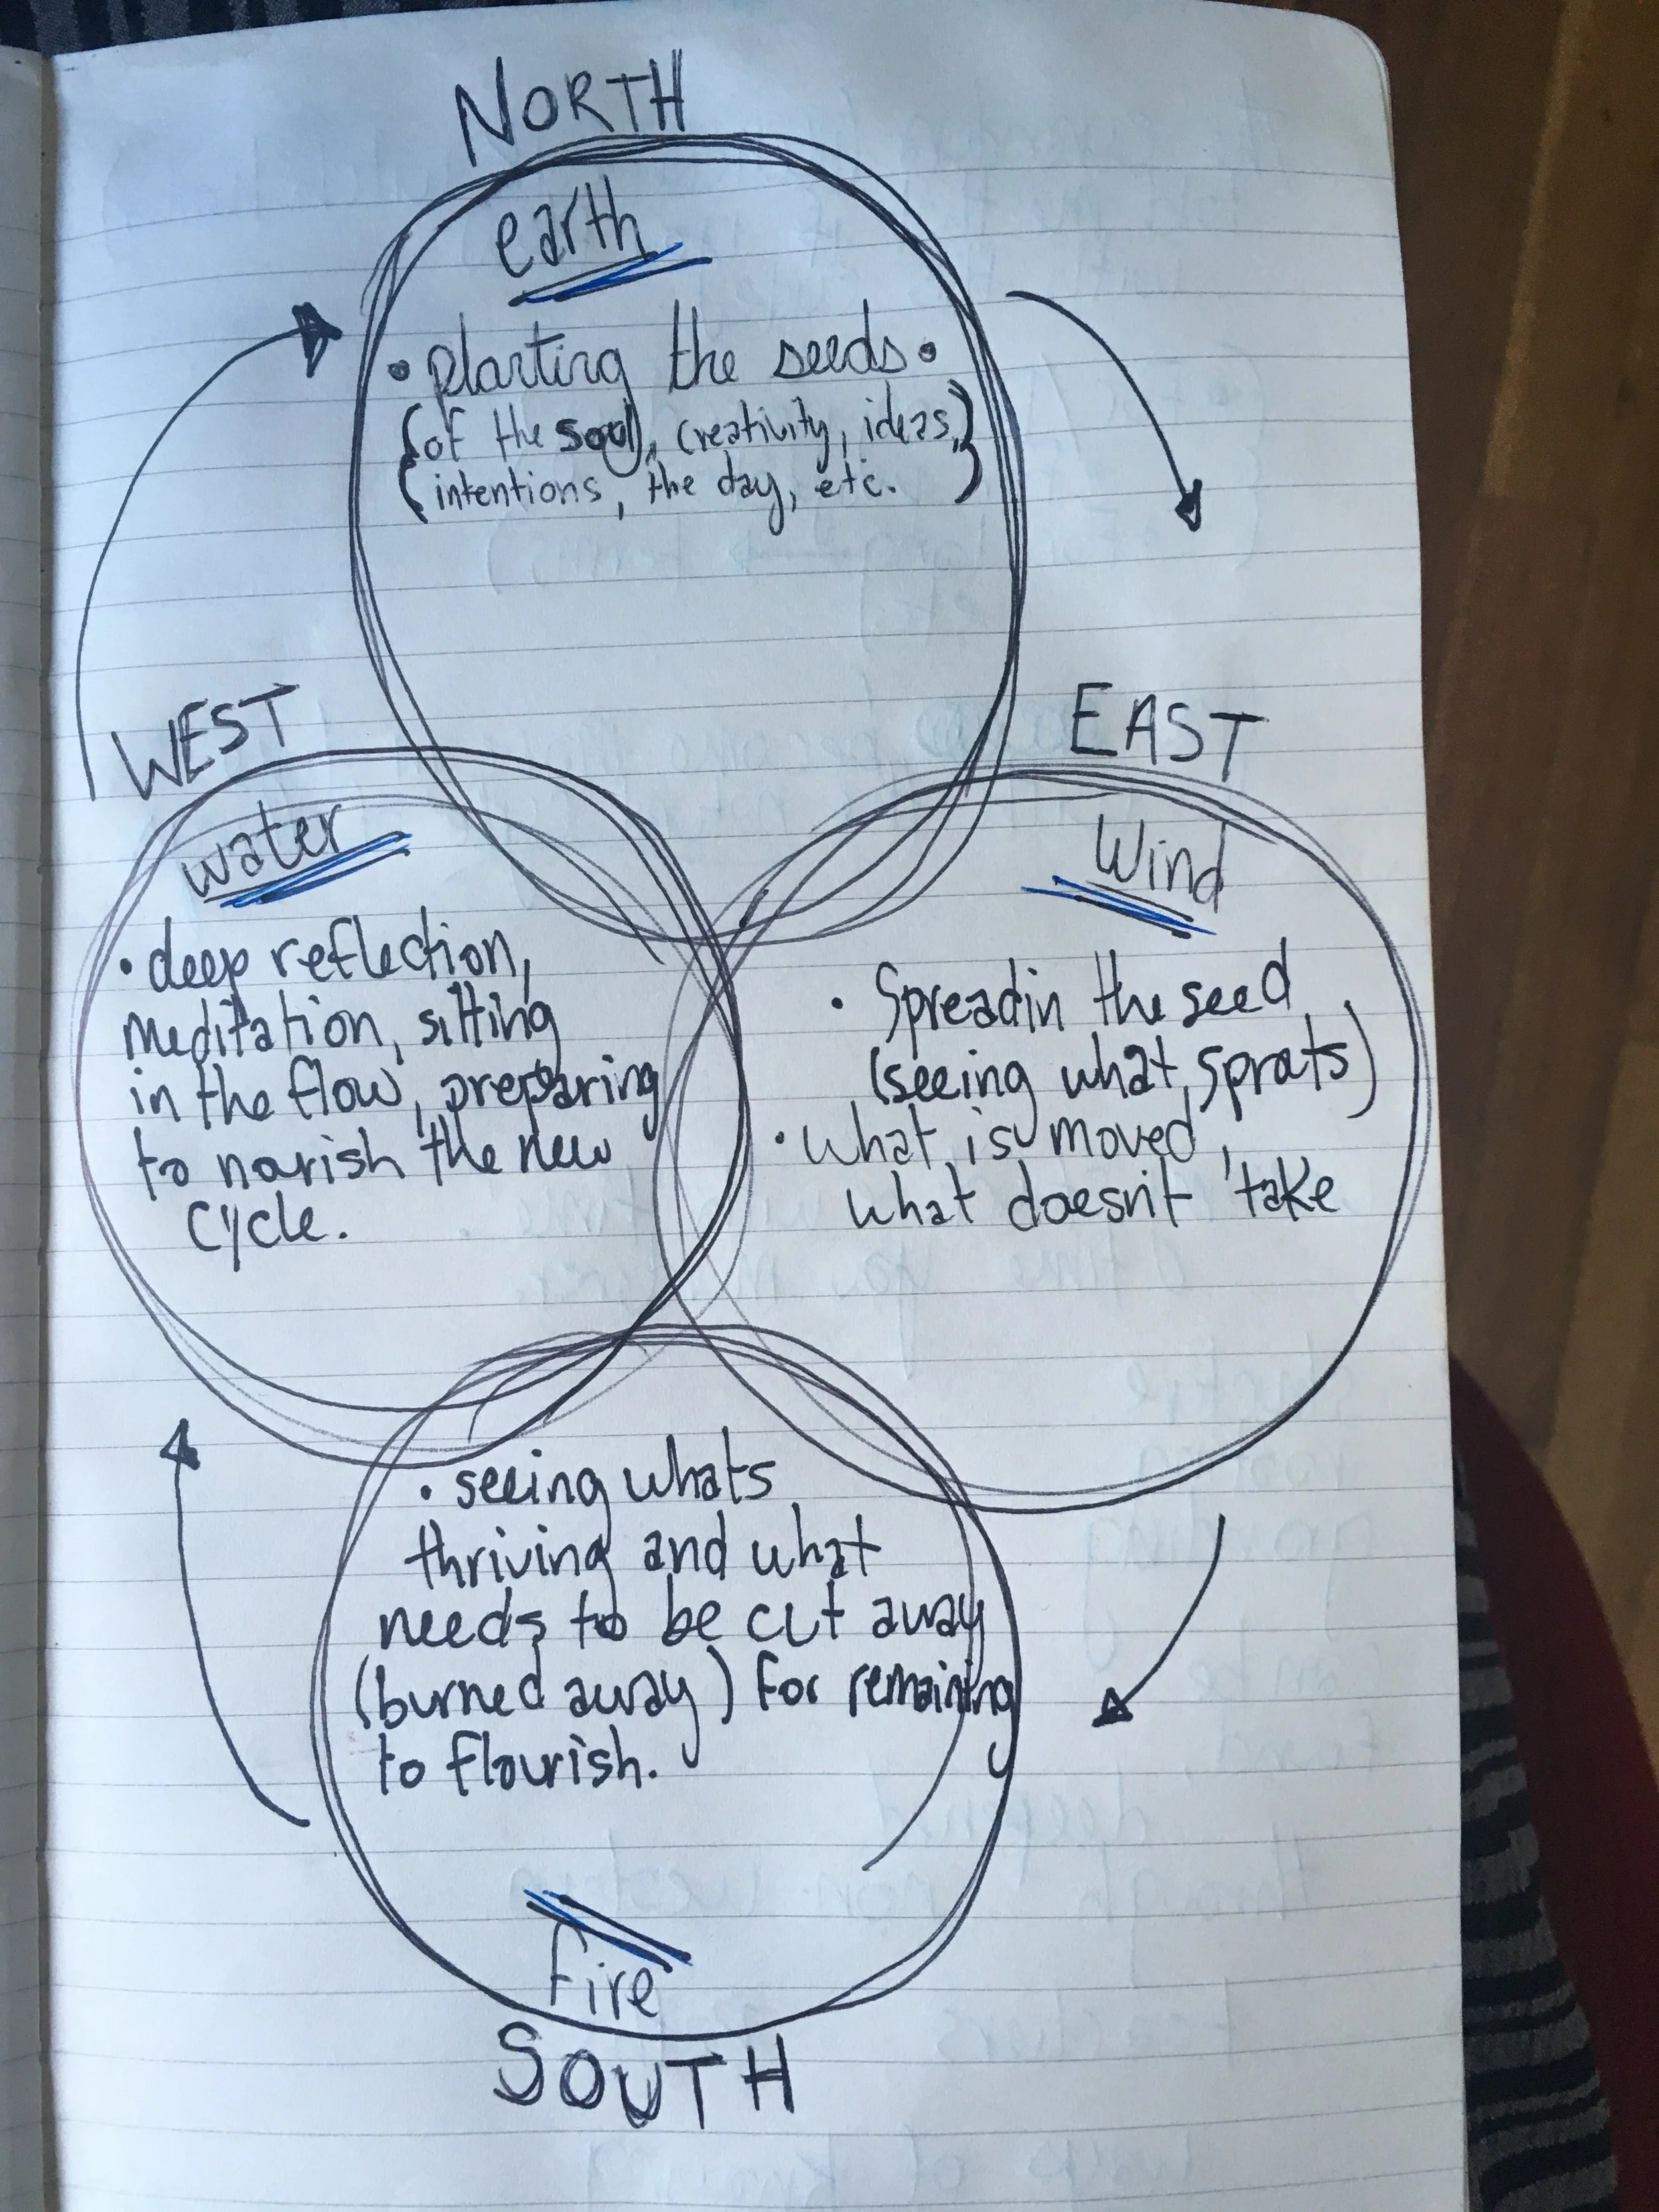 NORTH
earth
• planting the seeds •
(of the soul, creativity, ideas,)
(intentions, the day, etc.)
WEST
water
• deep reflection,
meditation, sitting
in the flow, preparing
to norish the new
cycle.
EAST
Wind
• Spreadin the seed
(seeing what sprats)
• what is moved,
what doesn't 'take
• seeing whats
thriving and what
needs to be cut away
(burned away) for remaining
to flourish.
Fire
SOUTH